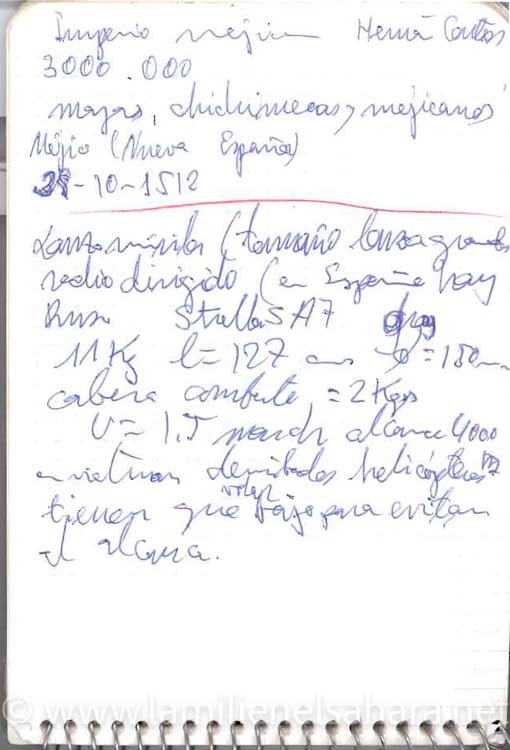 Imperio Hernán Cortés
3000.000
mayas, chichimecas, mejicanos
Méjico (Nueva España)
-10-1512
Lanzamisiles (tamaño lanzagranadas
radio dirigido (en España hay
Ruso Strella SA7
11 Kg l = 127 cm = 150
cabeza combate = 2 Kgs
V = 1.5 mach alcance 4000
en vietnam helicópteros
tienen que volar bajo para evitar
el
© www.lamilienelsahara.net